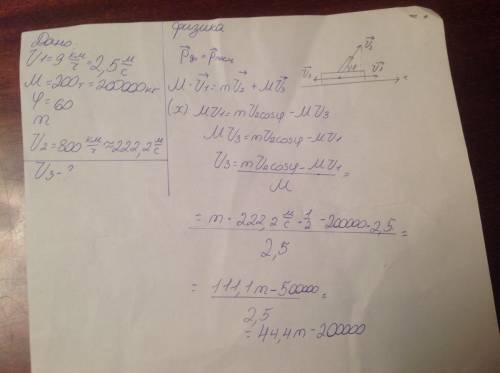 физика
Дано:
V1=9 км/ч=2,5 м/с
M=200т=200000кг
φ=60
m
V2=800 км/ч≈222,2 м/с
V3-?
M·V1=mV2+MV3
(x) MV1=mV2cosφ-MV3
MV3=mV2cosφ-MV1
V3=mV2cosφ-MV1/M=
=m·222,2 м/с·1/2-200000·2,5/2,5=
=111,1m-500000/2,5=
=44,4m-200000
V2
V1
V3
x